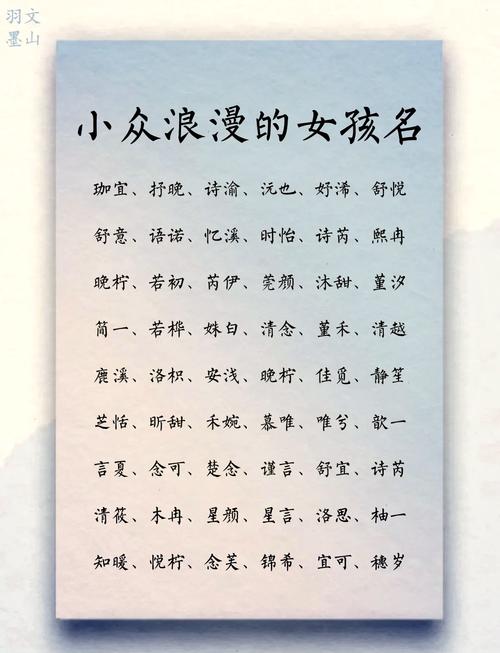 羽文
墨山
小众浪漫的女孩名
珈宜、抒晚、诗渝、沅也、妤浠、舒悦
舒意、语诺、忆溪、时怡、诗芮、熙冉
晚柠、若初、芮伊、莞颜、沐甜、堇汐
简一、若桦、姝白、清念、堇禾、清越
鹿溪、洛枳、安浅、晚柠、佳觅、静笙
芝恬、昕甜、禾婉、慕唯、唯兮、歆一
言夏、念可、楚念、谨言、舒宜、诗芮
清筱、木冉、星颜、星言、洛思、柚一
知暖、悦柠、念芙、锦希、宜可、穗岁